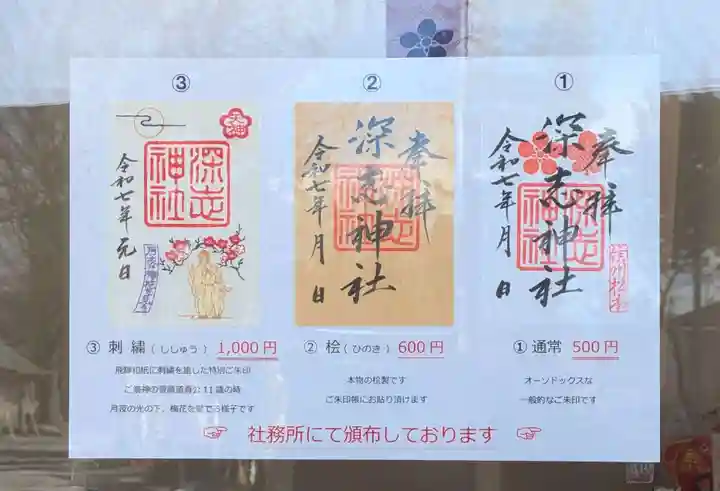 ①
奉拝
深志神社
令和七年 月 日
深志神社
信州松本
① 通常 500円
オーソドックスな
一般的なご朱印です
②
奉拝
深志神社
令和七年 月 日
② 桧(ひのき) 600円
本物の桧製です
ご朱印帳にお貼り頂けます
③
深志神社
令和七年 元日
③ 刺繍(ししゅう) 1,000円
飛騨和紙に刺繍を施した特別ご朱印
ご祭神の菅原道真公11歳の時
月夜の光の下、梅花を愛でる様子です
☞ 社務所にて頒布しております ☜